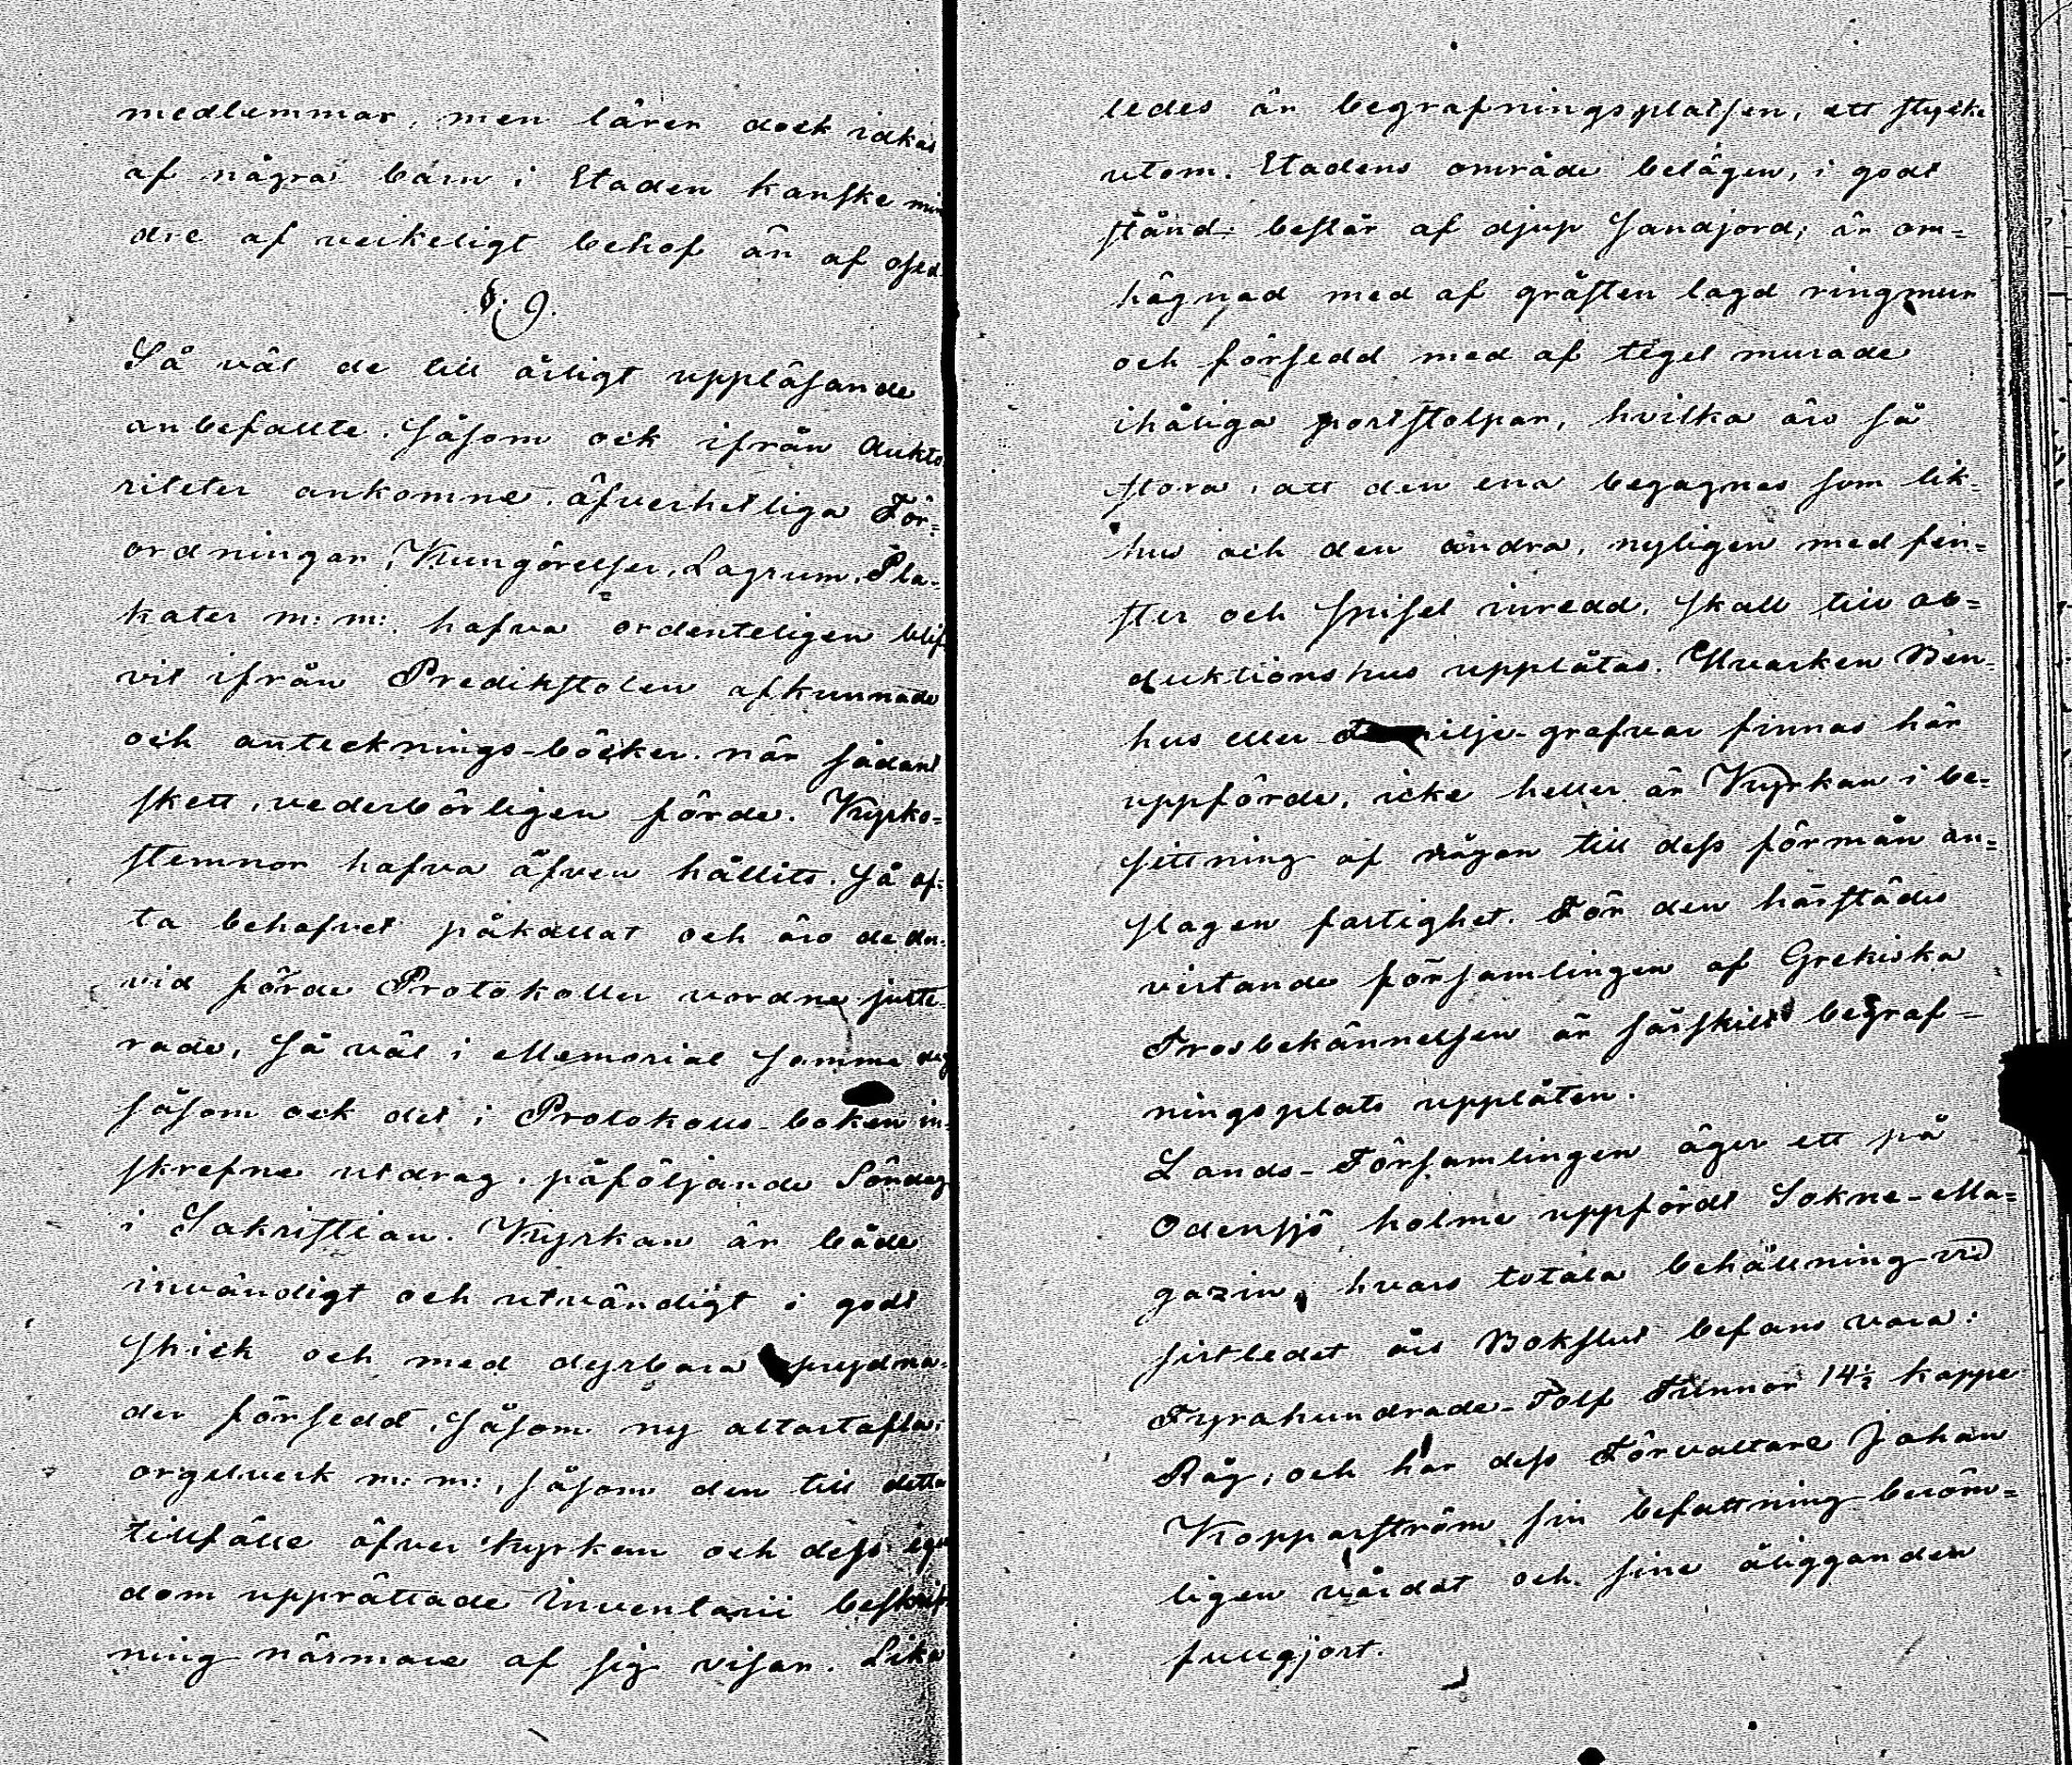 medlemmar, men lärer dock idkas
af några barn i Staden kanske min
dre af verkeligt behof än af osed.
§. 9.
Så väl de till årligt uppläsande
anbefallte, såsom ock ifrån Aukto
riteter ankomne, öfverhetliga För=
ordningar, Kungörelser, Lagrum, Pla-
kater m: m: hafva ordenteligen blif
vit ifrån Predikstolen afkunnade
och antecknings-böcker, när sådant
skett, vederbörligen förde. Kyrko=
stemnor hafva äfven hållits, så of=
ta behofvet påkallat och äro de der
vid förde Protokoller vordne juste-
rade, så väl i Memorial samma dag
såsom ock det i Protokolls-boken in-
skrefne utdrag, påföljande Söndag
i Sakristian. Kyrkan är både
invändigt och utvändigt i godt
skick och med dyrbara prydna-
der försedd, såsom ny altartafla,
orgelverk m: m:, såsom den till detta
tillfälle öfver kyrkan och dess egen
dom upprättade Inventarii beskrif
ning närmare af sig visar. Lika
ledes är begrafningsplatsen, ett stycke
utom Stadens område belägen, i godt
stånd: består af djup sandjord; är om=
hägnad med af gråsten lagd ringmur
och försedd med af tegel murade
ihåliga portstolpar, hvilka äro så
stora, att den ena begagnas som lik=
hus och den andra, nyligen med fen=
ster och spisel inredd, skall till ob=
duktionshus upplåtas. Hvarken Ben-
hus eller familje-grafvar finnas här
uppförde, icke heller är Kyrkan i be=
sittning af någon till dess förmån an=
slagen fastighet. För den härstädes
vistande församlingen af Grekiska
Trosbekännelsen är särskilt begraf=
ningsplats upplåten.
Lands-Församlingen äger ett på
Odensjö holme uppfördt Sokne-Ma=
gazin, hvars totala behållning vid
sistledet års Bokslut befans vara:
Fyrahundrade-Tolf Tunnor 14½ kappe
Råg, och har dess Förvaltare Johan
Kopparström sin befattning beröm=
ligen vårdat och sine åligganden
fullgjort.